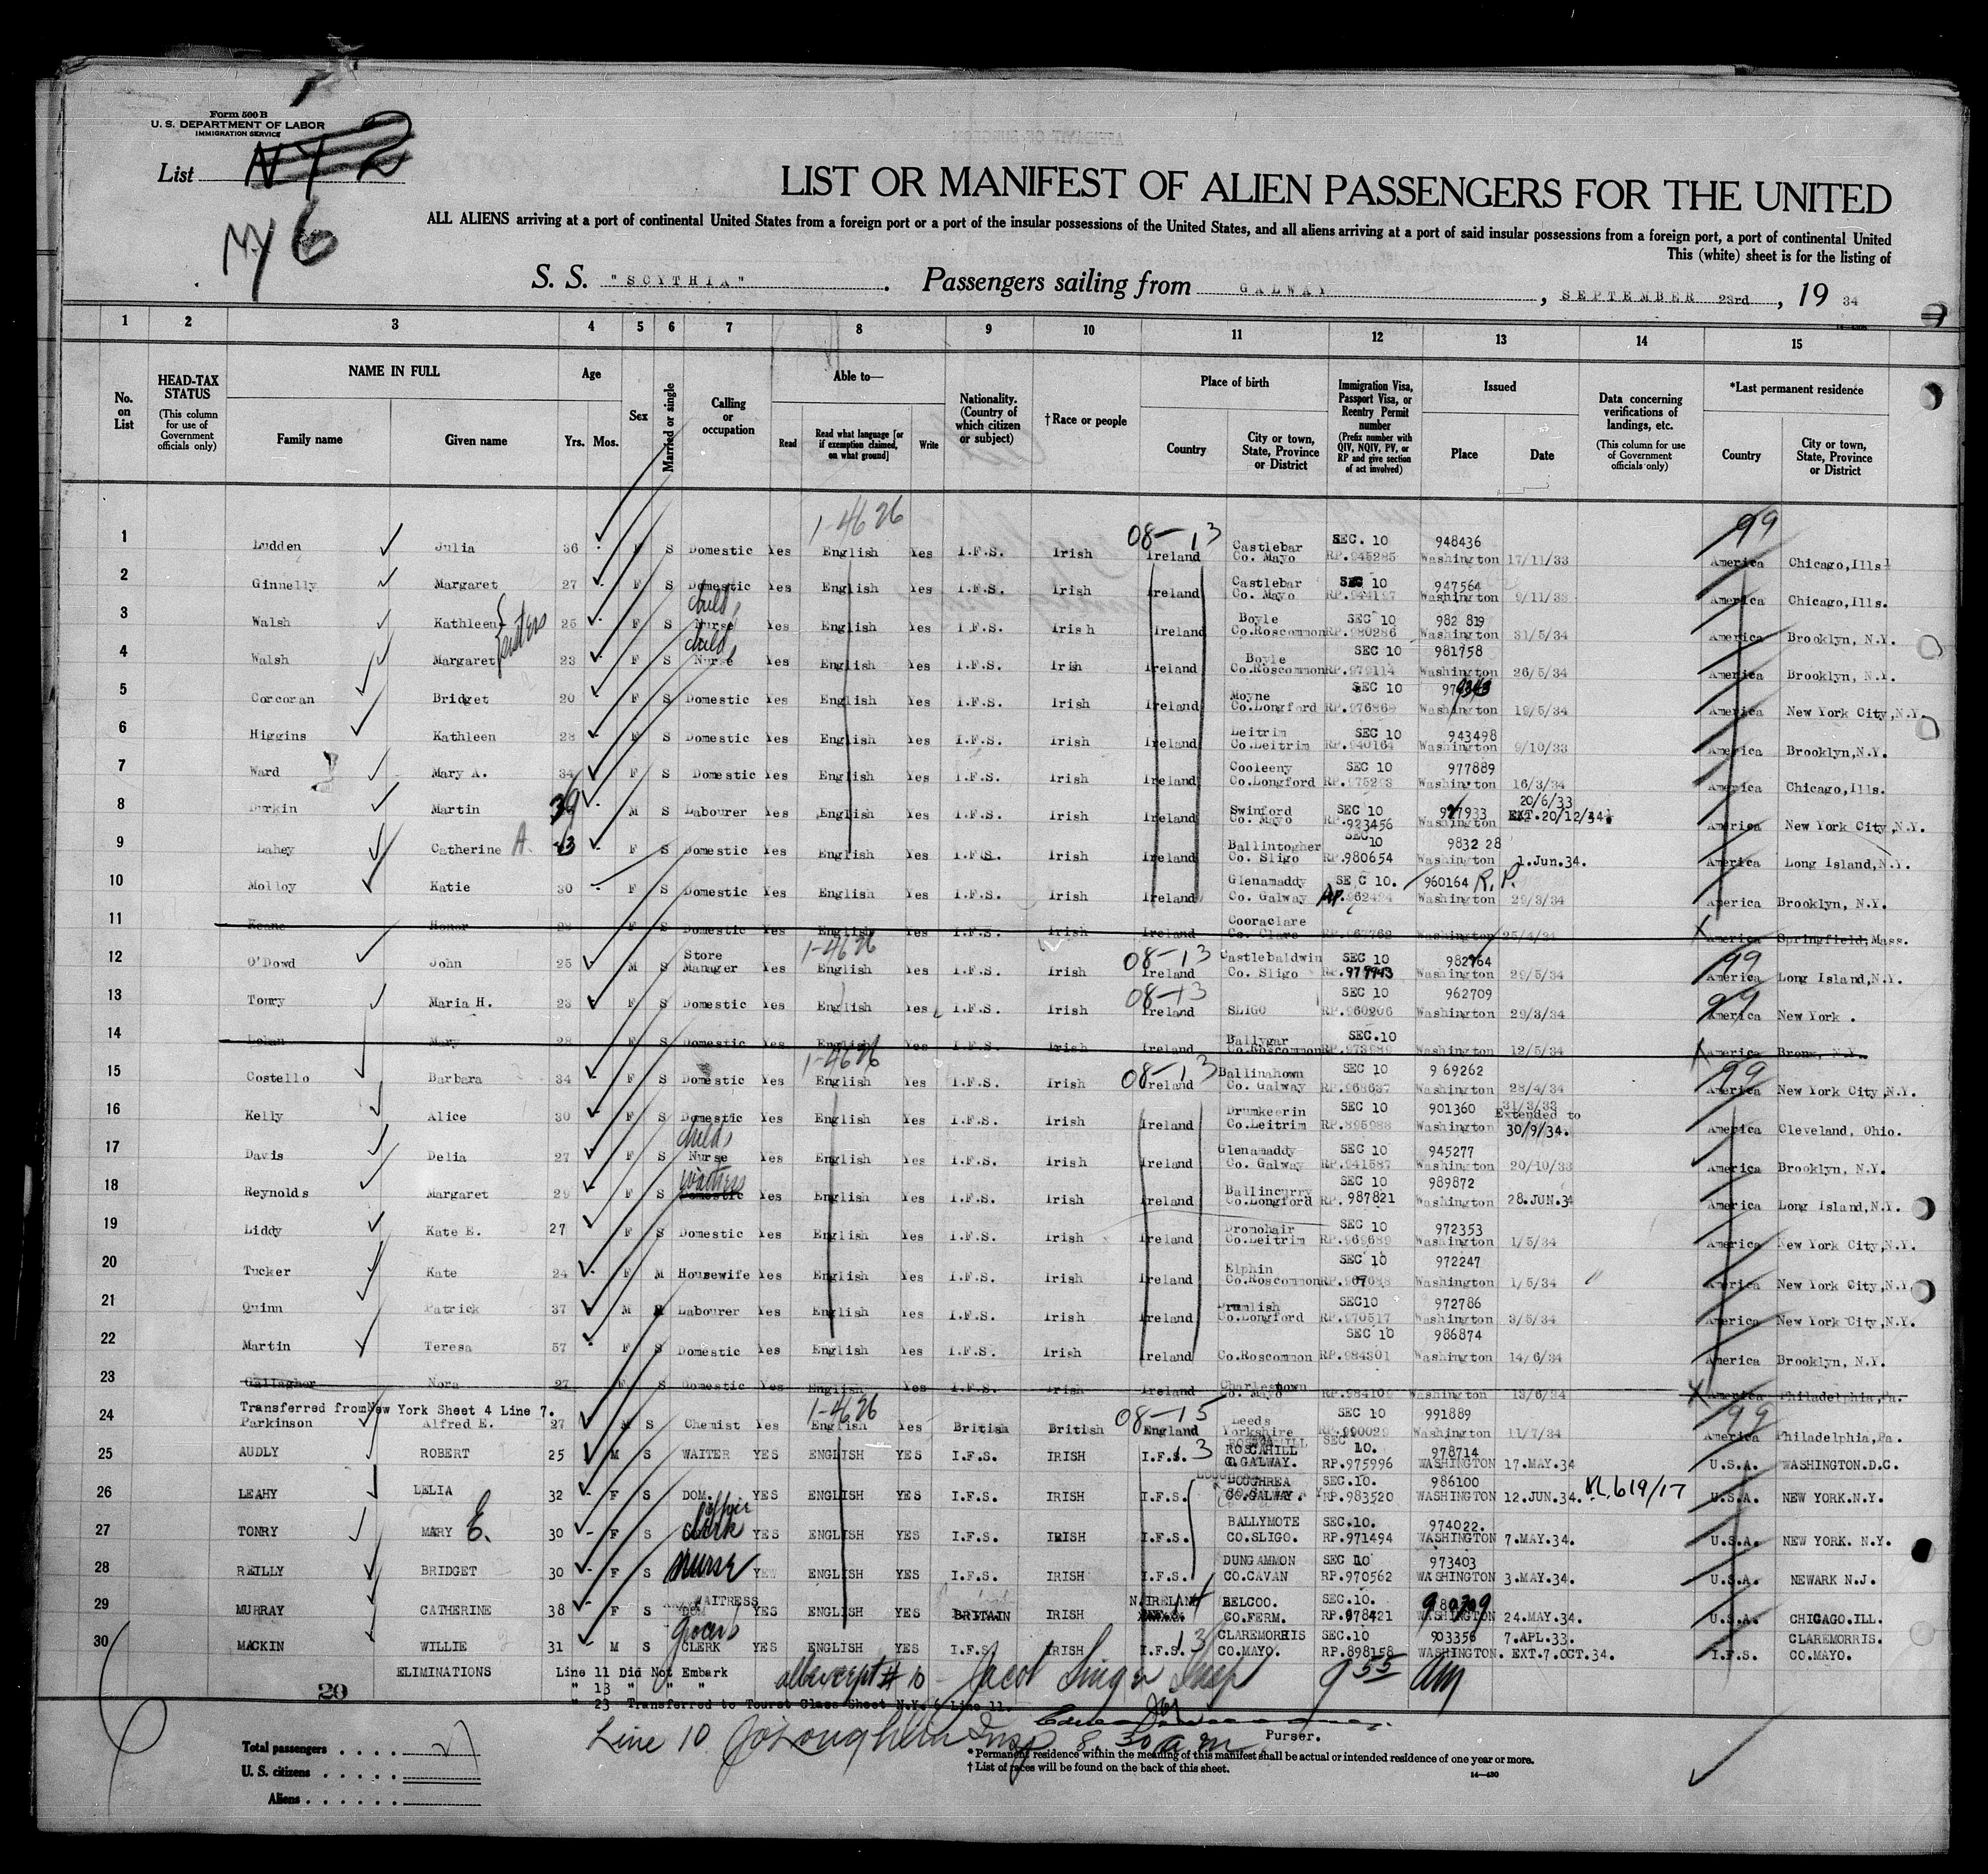 Form 500 B
U. S. DEPARTMENT OF LABOR
IMMIGRATION SERVICE
List NY 2
NY 6
LIST OR MANIFEST OF ALIEN PASSENGERS FOR THE UNITED
ALL ALIENS arriving at a port of continental United States from a foreign port or a port of the insular possessions of the United States, and all aliens arriving at a port of said insular possessions from a foreign port, a port of continental United
This (white) sheet is for the listing of
S. S. "SCYTHIA". Passengers sailing from GALWAY, SEPTEMBER 23rd, 19 34
1 2 3 4 5 6 7 8 9 10 11 12 13 14 15
No. on List
HEAD-TAX STATUS (This column for use of Government officials only)
NAME IN FULL Family name Given name
Age Yrs. Mos.
Sex
Married or single
Calling or occupation
Able to— Read Read what language [or if exemption claimed, on what ground] Write
Nationality. (Country of which citizen or subject)
† Race or people
Place of birth Country City or town, State, Province or District
Immigration Visa, Passport Visa, or Reentry Permit number (Prefix number with QIV, NQIV, PV, or RP and give section of act involved)
Issued Place Date
Data concerning verifications of landings, etc. (This column for use of Government officials only)
*Last permanent residence Country City or town, State, Province or District
1-4626 08-13 99
1 Ludden Julia 36 F S Domestic Yes English Yes I.F.S. Irish Ireland Castlebar Co. Mayo SEC. 10 RP.945285 948436 Washington 17/11/33 America Chicago, Ills
2 Ginnelly Margaret 27 F S Domestic Yes English Yes I.F.S. Irish Ireland Castlebar Co. Mayo SEC 10 947564 Washington 9/11/33 America Chicago,Ills.
3 Walsh Kathleen sisters 25 F S child's Nurse Yes English Yes I.F.S. Irish Ireland Boyle Co.Roscommon SEC 10 RP.980286 982 819 Washington 31/5/34 America Brooklyn, N.Y.
4 Walsh Margaret 23 F S child's Nurse Yes English Yes I.F.S. Irish Ireland Boyle Co.Roscommon SEC 10 RP.979114 981758 Washington 26/5/34 America Brooklyn, N.Y.
5 Corcoran Bridget 20 F S Domestic Yes English Yes I.F.S. Irish Ireland Moyne Co.Longford SEC 10 RP.976868 Washington 19/5/34 America New York City,N.Y.
6 Higgins Kathleen 28 F S Domestic Yes English Yes I.F.S. Irish Ireland Leitrim Co.Leitrim SEC 10 RP.940164 943498 Washington 9/10/33 America Brooklyn,N.Y.
7 Ward Mary A. 34 F S Domestic Yes English Yes I.F.S. Irish Ireland Cooleeny Co.Longford SEC 10 977889 Washington 16/3/34 America Chicago,Ills.
8 Durkin Martin 39 M S Labourer Yes English Yes I.F.S. Irish Ireland Swinford Co. Mayo SEC 10 RP.923456 927933 Washington 20/6/33 EXT.20/12/34. America New York City,N.Y.
9 Lahey Catherine A. 43 F S Domestic Yes English Yes I.F.S. Irish Ireland Ballintogher Co. Sligo SEC 10 RP.980654 9832 28 Washington 1.Jun.34. America Long Island,N.Y.
10 Molloy Katie 30 F S Domestic Yes English Yes I.F.S. Irish Ireland Glenamaddy Co. Galway SE C 10. 960164 R.P. Washington 29/3/34 America Brooklyn, N.Y.
11 Keane Honor 28 F S Domestic Yes English Yes I.F.S. Irish Ireland Cooraclare Co. Clare RP.967762 Washington 25/4/34 X America Springfield,Mass.
1-4626 08-13 99
12 O'Dowd John 25 M S Store Manager Yes English Yes I.F.S. Irish Ireland Castlebaldwin Co. Sligo SEC 10 RP.979943 982764 Washington 29/5/34 America Long Island,N.Y.
08-13 99
13 Tonry Maria H. 23 F S Domestic Yes English Yes I.F.S. Irish Ireland SLIGO SEC 10 RP.960206 962709 Washington 29/3/34 America New York .
14 Dolan Mary 28 F S Domestic Yes English Yes I.F.S. Irish Ireland Ballygar Co.Roscommon SEC.10 RP.973989 Washington 12/5/34 X America Bronx, N.Y.
1-4626 08-13 99
15 Costello Barbara 34 F S Domestic Yes English Yes I.F.S. Irish Ireland Ballinahown Co. Galway SEC 10 RP.968637 9 69262 Washington 28/4/34 America New York City,N.Y.
16 Kelly Alice 30 F S Domestic Yes English Yes I.F.S. Irish Ireland Drumkeerin Co.Leitrim SEC 10 RP.895988 901360 Washington 31/3/33 Extended to 30/9/34. America Cleveland, Ohio.
17 Davis Delia 27 F S child's Nurse Yes English Yes I.F.S. Irish Ireland Glenamaddy Co. Galway SEC 10 RP.941587 945277 Washington 20/10/33 America Brooklyn, N.Y.
18 Reynolds Margaret 29 F S waitress Domestic Yes English Yes I.F.S. Irish Ireland Ballincurry Co.Longford SEC 10 RP. 987821 989872 Washington 28.JUN.34 America Long Island,N.Y.
19 Liddy Kate E. 27 F S Domestic Yes English Yes I.F.S. Irish Ireland Dromohair Co.Leitrim SEC 10 RP.969689 972353 Washington 1/5/34 America New York City,N.Y.
20 Tucker Kate 24 F M Housewife Yes English Yes I.F.S. Irish Ireland Elphin Co.Roscommon SEC 10 972247 Washington 1/5/34 America New York City,N.Y
21 Quinn Patrick 37 M Labourer Yes English Yes I.F.S. Irish Ireland Drumlish Co.Longford SEC10 RP.970517 972786 Washington 3/5/34 America New York City,N.Y.
22 Martin Teresa 57 F S Domestic Yes English Yes I.F.S. Irish Ireland Co.Roscommon SEC 10 RP.984301 986874 Washington 14/6/34 America Brooklyn, N.Y.
23 Gallagher Nora 27 F S Domestic Yes English Yes I.F.S. Irish Ireland Charlestown Co. Mayo RP.984109 Washington 13/6/34 X America Philadelphia,Pa.
Transferred from New York Sheet 4 Line 7. 1-4626 08-15 99
24 Parkinson Alfred E. 27 M S Chemist Yes English Yes British British England Leeds Yorkshire SEC 10 RP.990029 991889 Washington 11/7/34 America Philadelphia,Pa.
25 AUDLY ROBERT 25 M S WAITER YES ENGLISH YES I.F.S. IRISH I.F.S. 13 ROSCAHILL O.GALWAY. SEC 10. RP.975996 978714 WASHINGTON 17.MAY.34 U.S.A. WASHINGTON.D.C.
26 LEAHY LELIA 32 F S DOM. YES ENGLISH YES I.F.S. IRISH I.F.S. LOUGHREA CO.GALWAY. SEC.10. RP.983520 986100 WASHINGTON 12.JUN.34. VL.619/17 U.S.A. NEW YORK.N.Y.
27 TONRY MARY E. 30 F S office Clerk YES ENGLISH YES I.F.S. IRISH I.F.S. BALLYMOTE CO.SLIGO. SEC.10. RP.971494 974022. WASHINGTON 7.MAY.34. U.S.A. NEW YORK. N.Y.
28 REILLY BRIDGET 30 F S nurse YES ENGLISH YES I.F.S. IRISH I.F.S. DUNGAMMON CO.CAVAN SEC 10 RP.970562 973403 WASHINGTON 3.MAY.34. U.S.A. NEWARK N.J.
29 MURRAY CATHERINE 38 F S WAITRESS DOM YES ENGLISH YES BRITAIN IRISH N.IRELAND BELCOO. CO.FERM. SEC.10. RP.978421 980309 WASHINGTON 24.MAY.34. U.S.A. CHICAGO.ILL.
30 MACKIN WILLIE 31 M S Grocer's CLERK YES ENGLISH YES I.F.S. IRISH I.F.S. 13 CLAREMORRIS CO.MAYO. SEC.10 RP.898158 903356 WASHINGTON. 7.APL.33. EXT.7.OCT.34. I.F.S. CLAREMORRIS. CO.MAYO.
ELIMINATIONS Line 11 Did Not Embark all except # 10 Jacob Singer Insp 9 55 am
" 13 " " "
" 23 Transferred to Tourst Class Sheet N.Y. 6 Line 11.
20
Line 10 J O'Loughlin Insp 8.30 a m
Purser.
Total passengers . . . .
U. S. citizens . . . . .
Aliens . . . . . .
* Permanent residence within the meaning of this manifest shall be actual or intended residence of one year or more.
† List of races will be found on the back of this sheet.
14—430